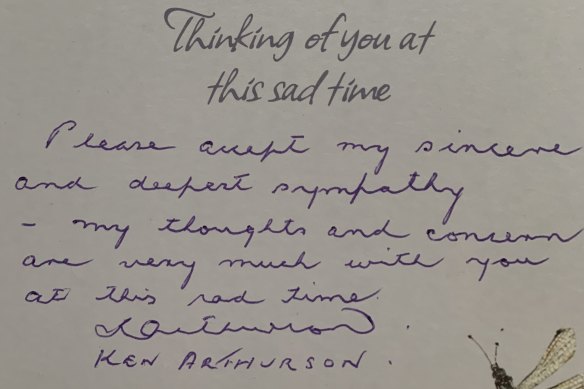 Thinking of you at
this sad time
Please accept my sincere
and deepest sympathy
- my thoughts and concern
are very much with you
at this sad time.
KArthurson.
KEN ARTHURSON.